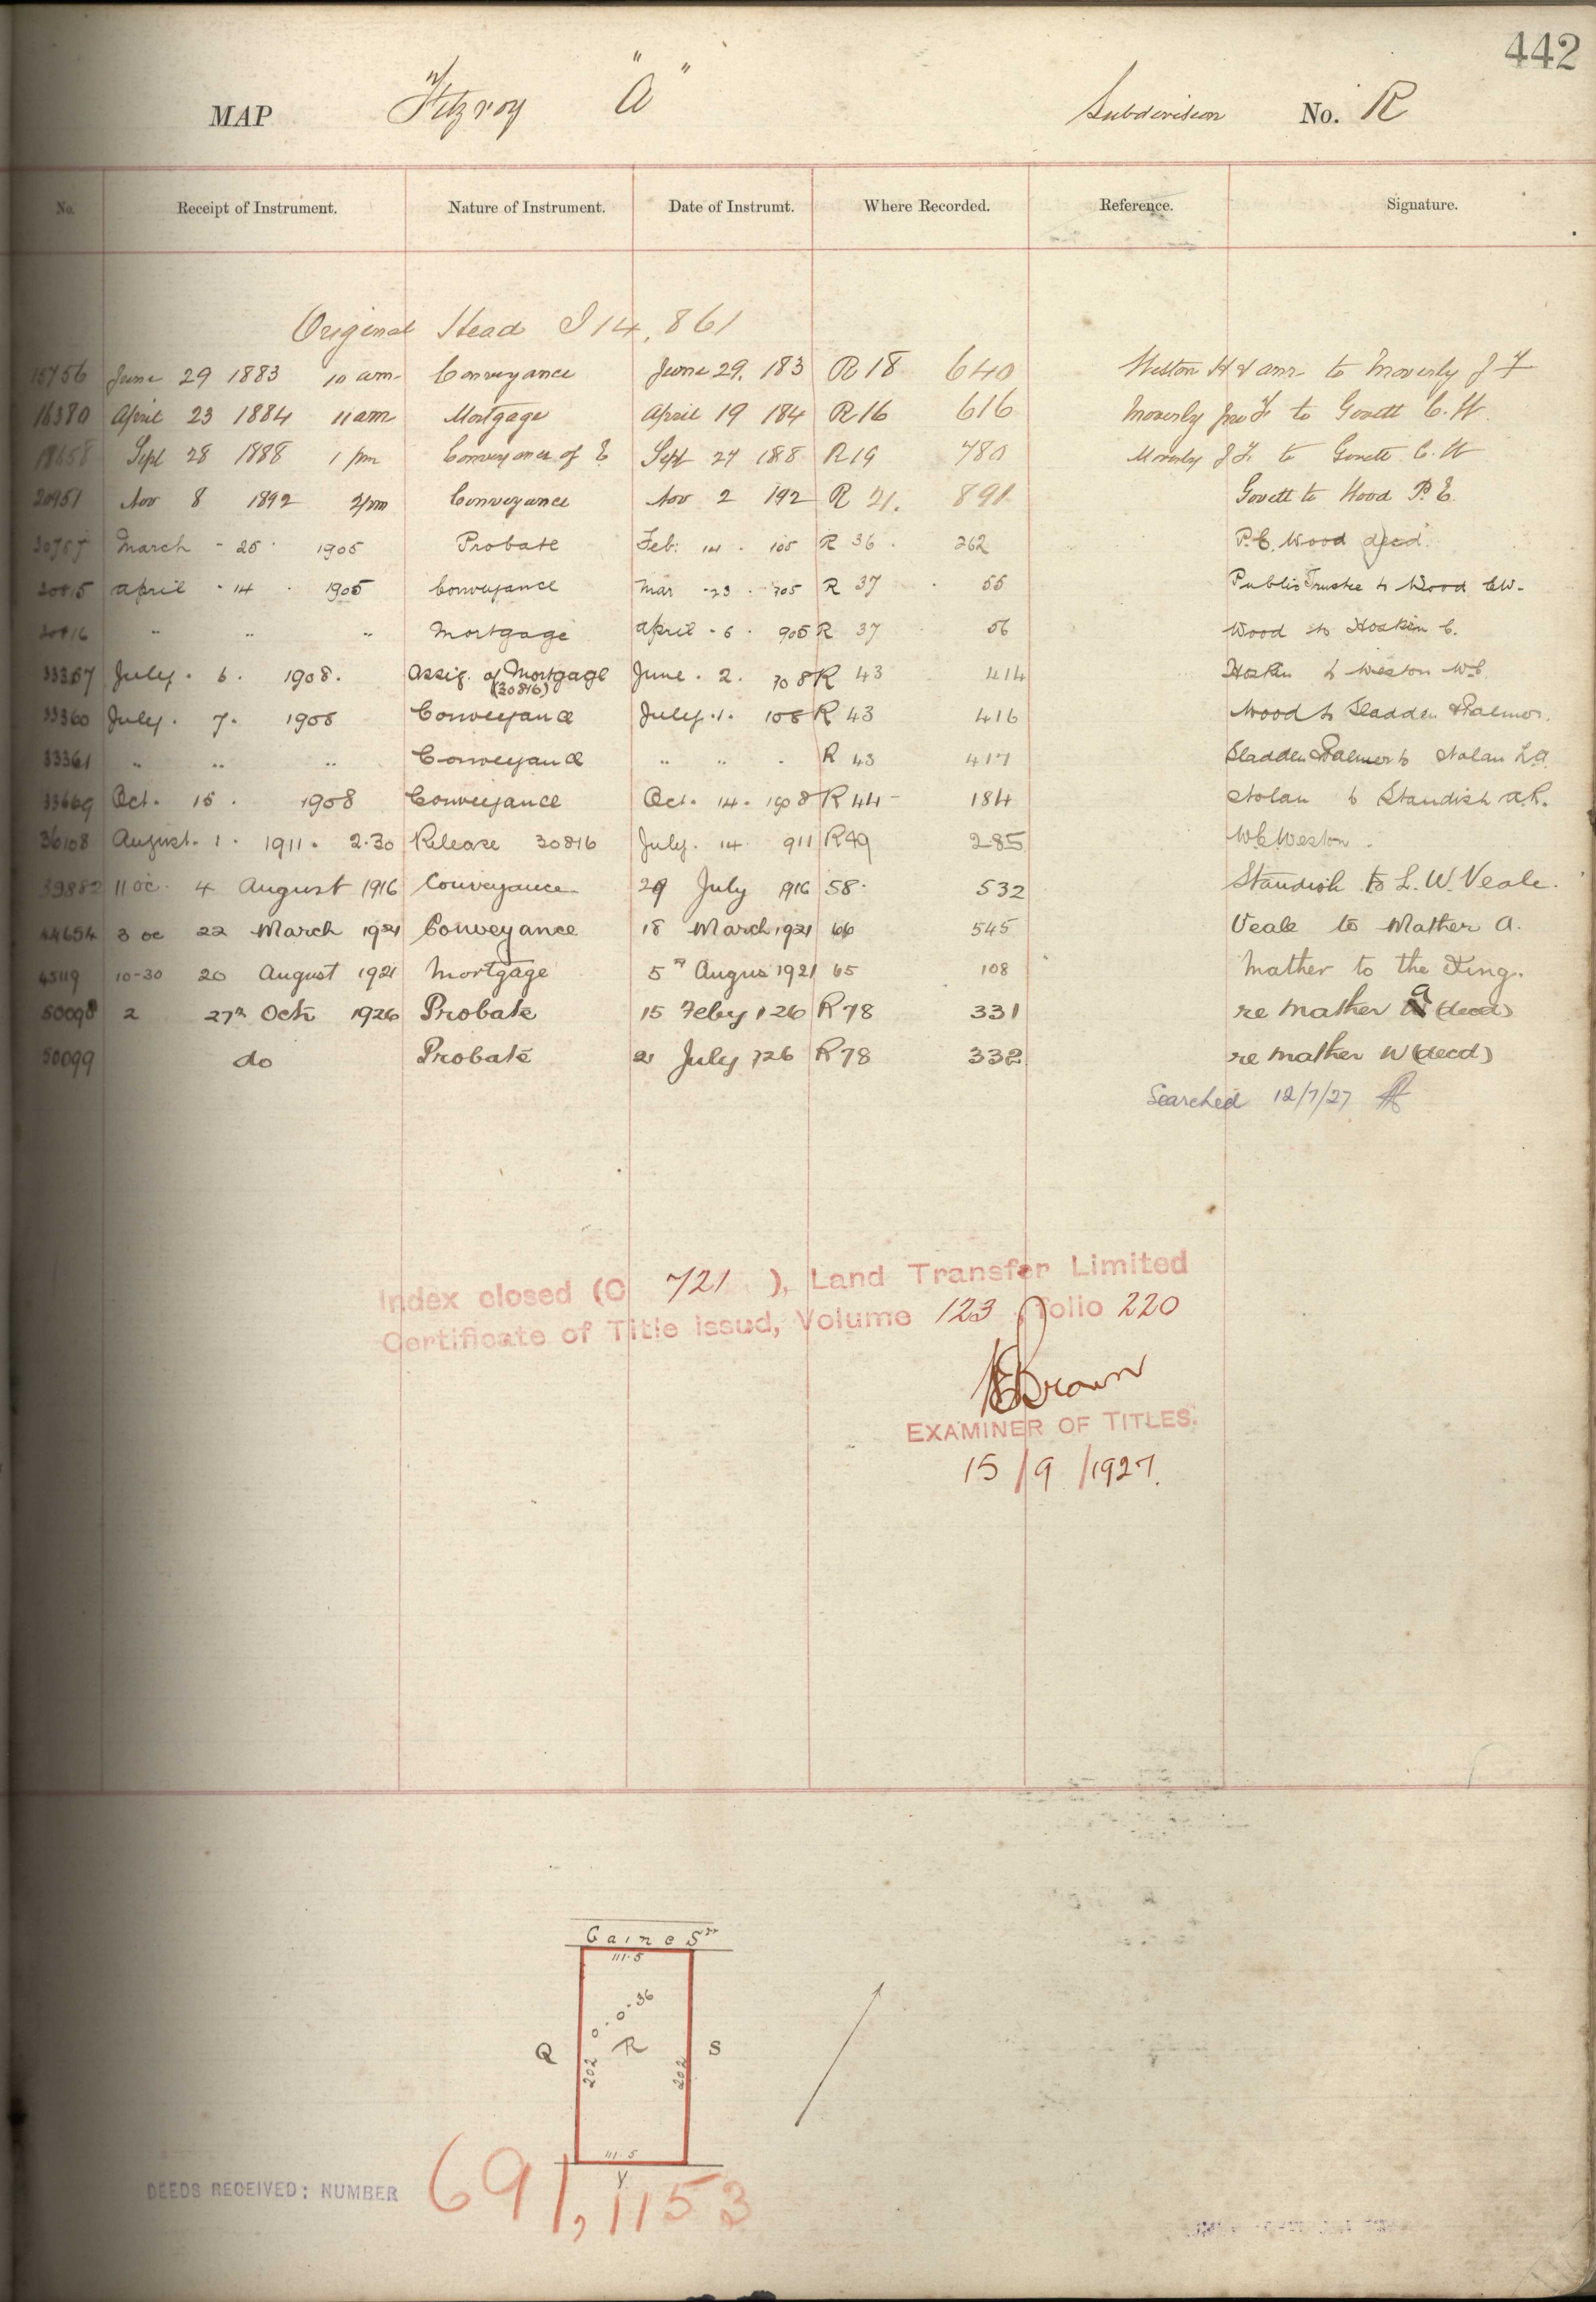 442
MAP "Fitzroy "A" Subdivision No. R
No. Receipt of Instrument. Nature of Instrument. Date of Instrumt. Where Recorded. Reference. Signature.
Original Head I 14, 861
15756 June 29 1883 10 am Conveyance June 29. 183 R 18 640 H & anr to Moverly J F
16380 April 23 1884 11 am Mortgage April 19 184 R 16 616 Moverly Jno F. to Govett C. H.
18658 Sept 28 1888 1 pm Conveyance of E Sept 27 188 R 19 780 Moverly J F. to Govett C. H
20951 Nov 8 1892 2 pm Conveyance Nov 2 192 R 21. 891 Govett to Wood P. E.
March - 25 · 1905 Probate Feb: 14 · 105 R 36 · 262 P.E. Wood decd.
30815 April - 14 · 1905 Conveyance Mar - 23 · 905 R 37 · 55 Public Trustee to Wood EW.
30816 " " " Mortgage April - 6 · 905 R 37 · 56 Wood to Hoskin C.
33357 July · 6 · 1908. Assig. of Mortgage June · 2. 908 R 43 414 Hoskin to Weston W.C.
(30816)
33360 July · 7 · 1908 Conveyance July · 1 · 108 R 43 416 Wood to Sladden & Palmer.
33361 " " " Conveyance " " · R 43 417 Sladden & Palmer to Nolan L.A.
33669 Oct. 15 · 1908 Conveyance Oct. 14 · 1908 R 44 - 184 Nolan to Standish A.R.
36108 August. 1 · 1911 · 2.30 Release 30816 July. 14 · 911 R49 285 W.C. Weston.
39882 11 oc. 4 August 1916 Conveyance 29 July 1916 58 · 532 Standish to L. W. Veale.
44654 3 oc 22 March 1921 Conveyance 18 March 1921 66 545 Veale to Mather A.
45119 10-30 20 August 1921 Mortgage 5th Augus 1921 65 108 Mather to the King.
50098 2 27th Octr 1926 Probate 15 Feby 126 R 78 331 re Mather A (decd)
50099 do Probate 21 July 126 R 78 332 re Mather W (decd)
Searched 12/7/27
Index closed (C 721 ), Land Transfer Limited
Certificate of Title issud, Volume 123, folio 220
Brown
EXAMINER OF TITLES.
15/9/1927.
Gaine St
111·5
0·0·36
Q R S
202 202
111·5
Y
DEEDS RECEIVED: NUMBER 691, 1153